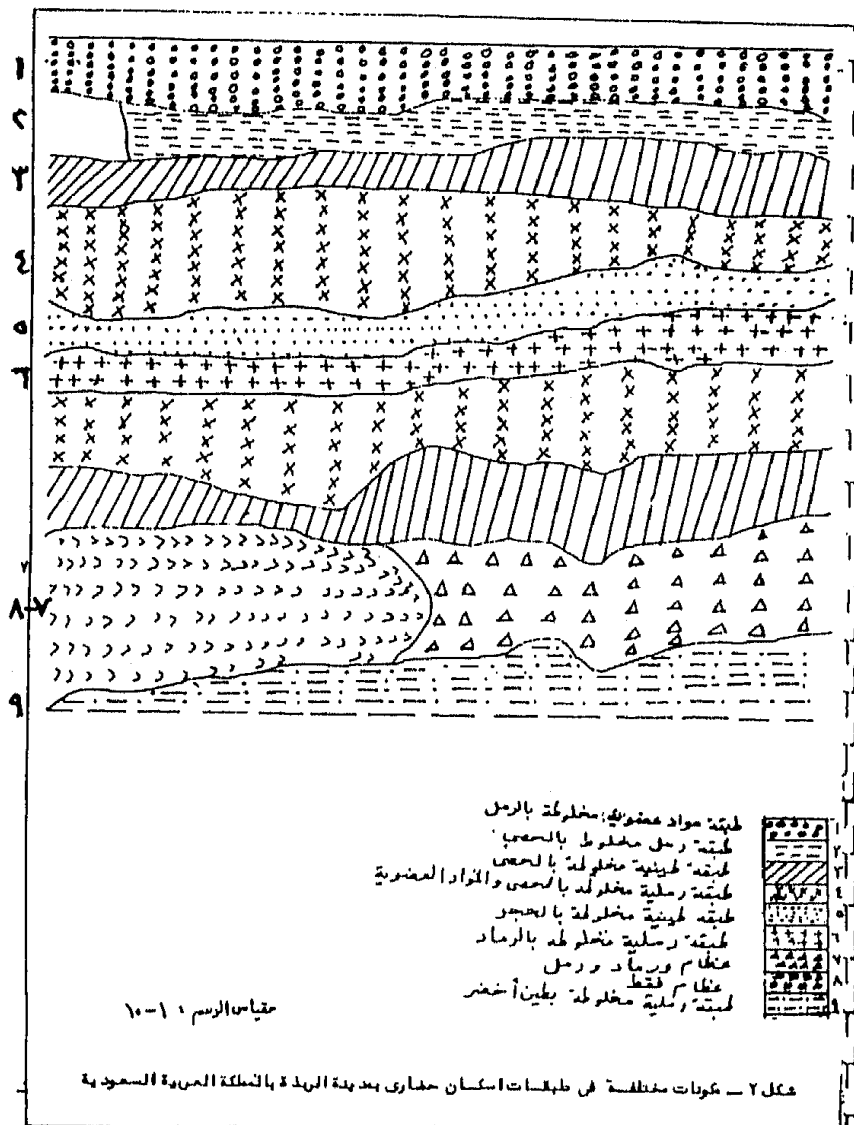 ١
٢
٣
٤
٥
٦
٧-٨
٩
طبقة مواد عضوية مخلوطة بالرمل ١
طبقة رمل مخلوط بالحصى ٢
طبقة طينية مخلوطة بالحصى ٣
طبقة رملية مخلوطة بالحصى والمواد العضوية ٤
طبقة طينية مخلوطة بالحجر ٥
طبقة رملية مخلوطة بالرماد ٦
عظام ورماد ورمل ٧
عظام فقط ٨
طبقة رملية مخلوطة بطين أخضر ٩
مقياس الرسم ١-١٠
شكل ٢ ــ مكونات مختلفة فى طبقات اسكان حضارى بمدينة الربذة بالمملكة العربية السعودية